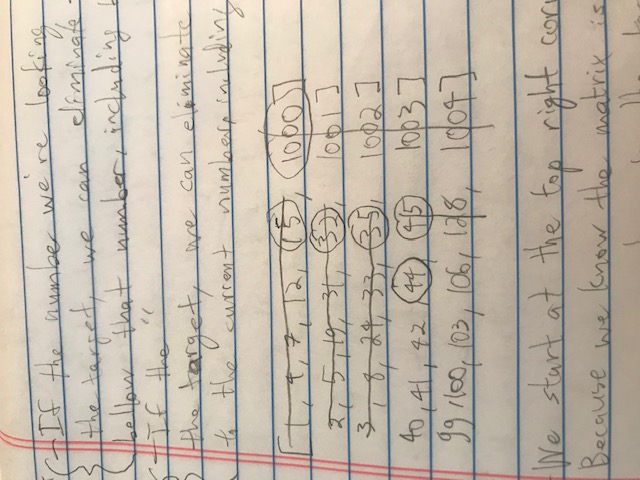 -If the number we're looking
the target, we can eliminate
bellow that number, including
-If the "
the target, we can eliminate
to the current number, including
[ 1, 4, 7, 12, 15, 1000]
2, 5, 19, 31, 32, 1001]
3, 8, 24, 33, 35, 1002]
40, 41, 42, 44, 45, 1003]
99, 100, 103, 106, 128, 1004]
We start at the top right
Because we know the matrix is